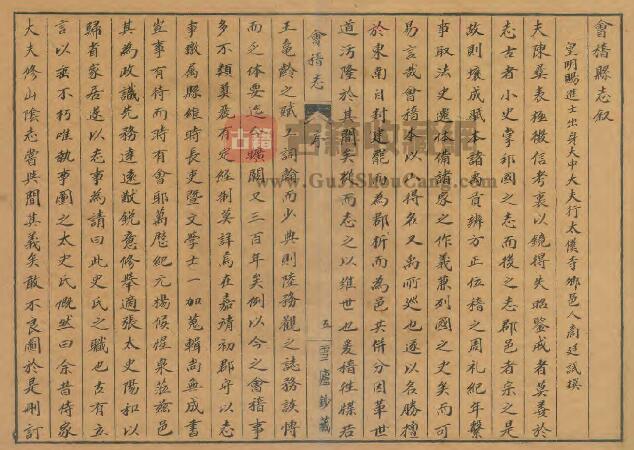 會稽縣志叙
皇明賜進士出身大中大夫行太僕寺卿邑人商廷試撰
夫陳藝表極徵信考衷以鏡得失昭鑒戒者莫善於
志古者小史掌邦國之志而後之志郡邑者宗之是
故則壤成賦本諸禹貢辨方正位稽之周礼紀年繫
事取法史遷体備諸家之作義兼列國之史矣而可
易言哉會稽本以山得名又禹所巡也遂以名勝擅
於東南自封建罷而為郡析而為邑其併分因革世
道污隆於其間矣機而志之以維世也爰稽往牒若
會稽志
序
五
雪廬鈔藏
王龜齡之賦工訓翰而少典則陸務觀之誌務該博
而乏体要迄今曠闕又三百年矣例以今之會稽事
多不類奠厥有定經制莫詳焉在嘉靖初郡守以志
事檄属縣維時長吏暨文學士一加蒐輯尚無成書
豈事有待而時有會耶萬曆紀元楊候惺泉蒞茲邑
其為政識先務達遠猷銳意修舉適張太史陽和以
歸省家居遂以志事為請曰此史氏之職也古有立
言以垂不朽唯執事圖之太史氏慨然曰余昔侍家
大夫修山陰志嘗與聞其義矣敢不良圖於是刪訂
古籍收藏
www.GuJiShouCang.com